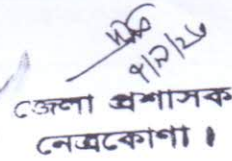 ৭/১/২৬
জেলা প্রশাসক
নেত্রকোণা।